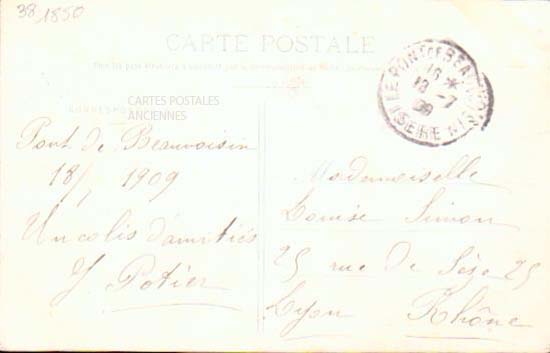 38 1850
CARTE POSTALE
CORRESPONDANCE
CARTES POSTALES
ANCIENNES
Pont de Beauvoisin
18/7 1909
Un colis d'amitiés
J Potier
LE PONT DE BEAUVOISIN
16 *
18 - 7
09
ISERE
Mademoiselle
Louise Simon
25 rue de Sèze 25
Lyon Rhône